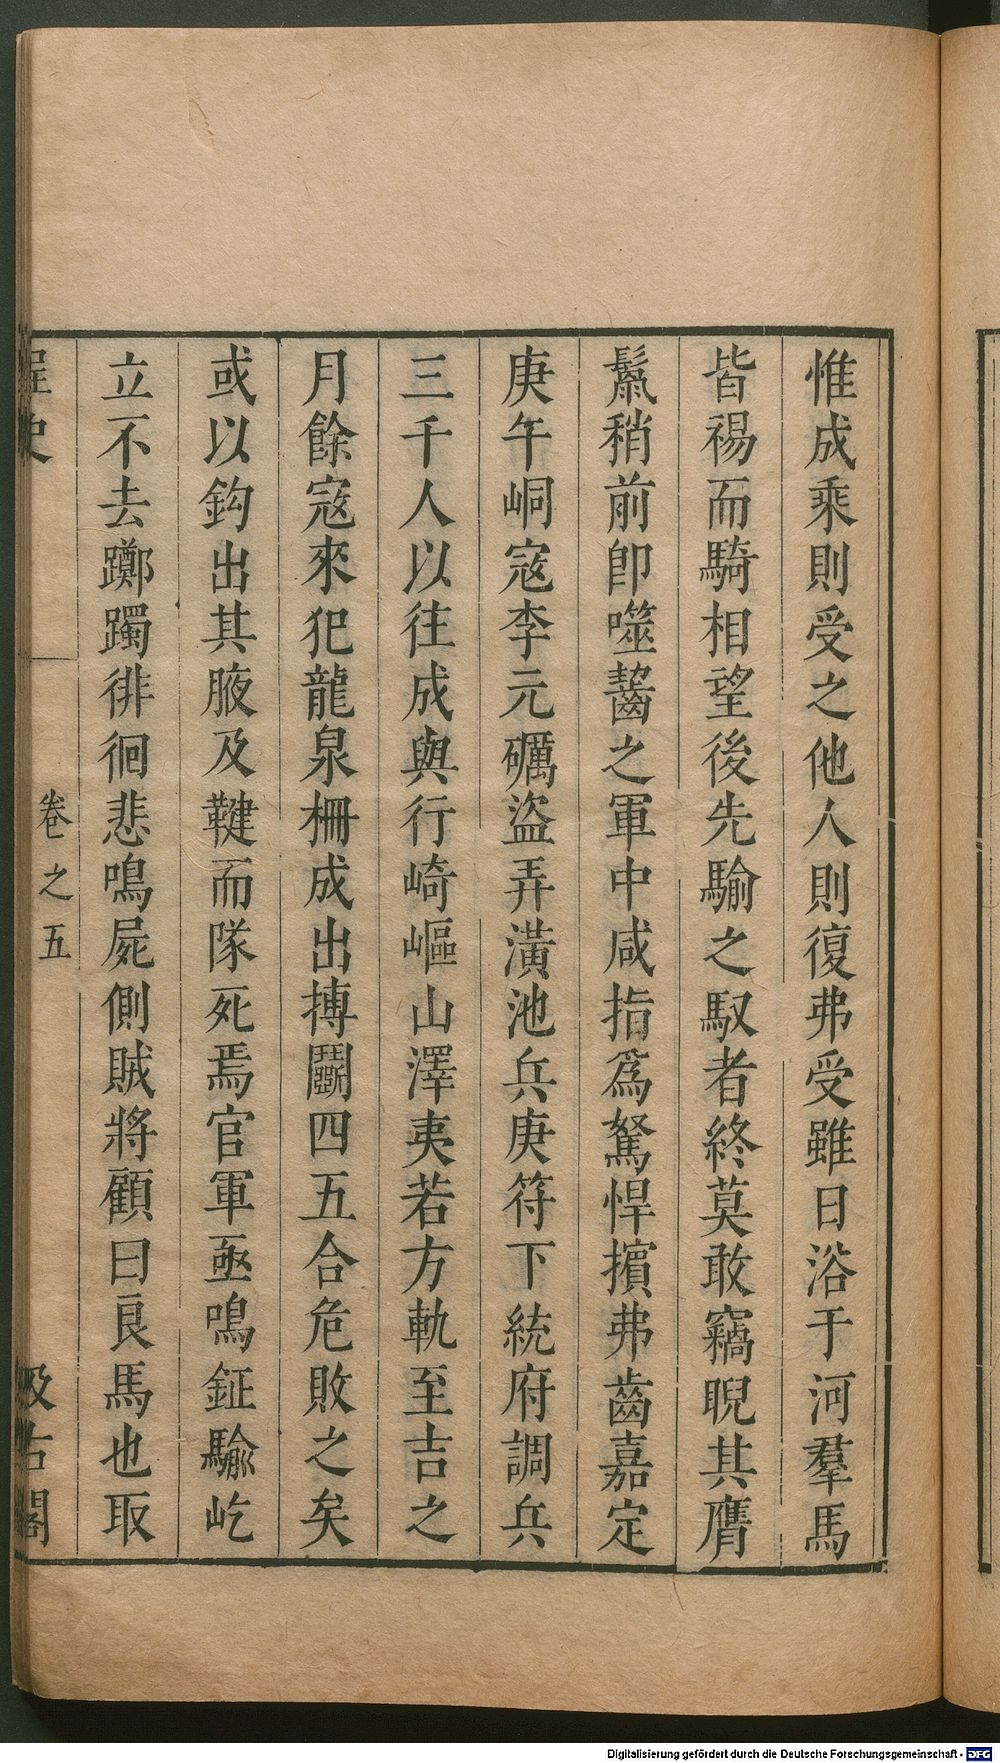 惟成乘則受之他人則復弗受雖日浴于河羣馬
皆裼而騎相望後先騟之馭者終莫敢竊睨其膺
鬛稍前卽噬齧之軍中咸指爲駑悍擯弗齒嘉定
庚午峒寇李元礪盜弄潢池兵庚符下統府調兵
三千人以往成與行崎嶇山澤夷若方軌至吉之
月餘寇來犯龍泉柵成出搏鬭四五合危敗之矣
或以鈎出其腋及鞬而隊死焉官軍亟鳴鉦騟屹
立不去躑躅徘徊悲鳴屍側賊將顧曰良馬也取
桯史
卷之五
汲古閣
Digitalisierung gefördert durch die Deutsche Forschungsgemeinschaft - DFG